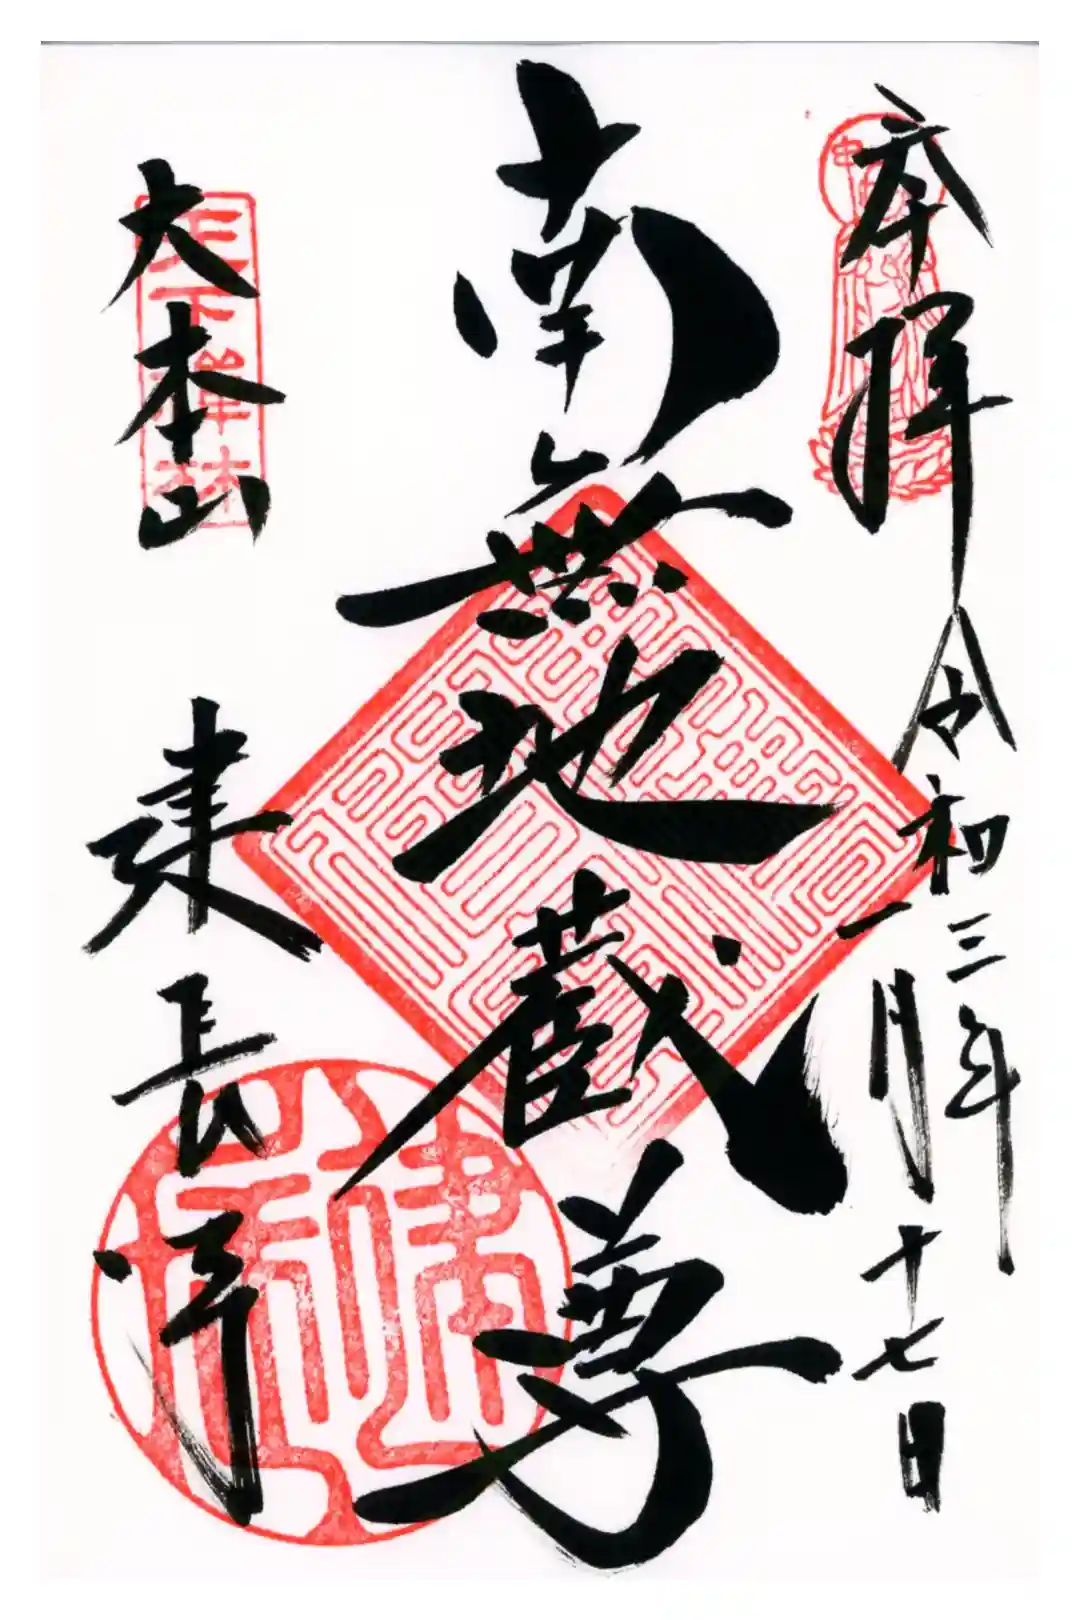 奉拝 令和三年
一月十七日
南無地蔵尊
大本山 建長寺
天下禅林